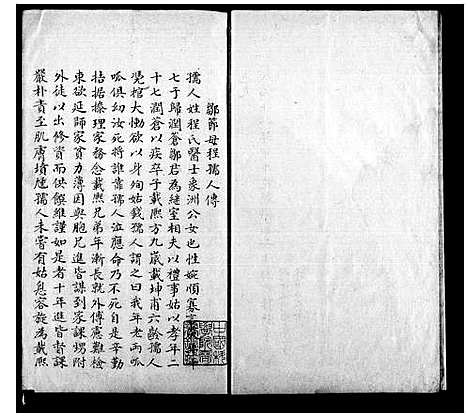 鄒節母程孺人傳
孺人姓程氏醫士象洲公女也性婉順寡言
七于歸潤蒼鄒君為繼室相夫以禮事姑以孝年二
十七潤蒼以疾卒子載熙方九歲載坤甫六齡孺人
凭棺大慟欲以身殉姑錢孺人謂之曰我年老兩孤
呱俱幼汝死將誰靠孺人泣應命乃不死自是辛勤
拮据摒理家務念載熙兄弟年漸長就外傅憲難檢
束欲延師家貧力薄因與胞兄進皆謀到家課甥附
外徒以出修資而供饌維謹如是者十年進皆督課
嚴朴責至肌膚墳腫孺人未嘗有姑息容旋為載熙